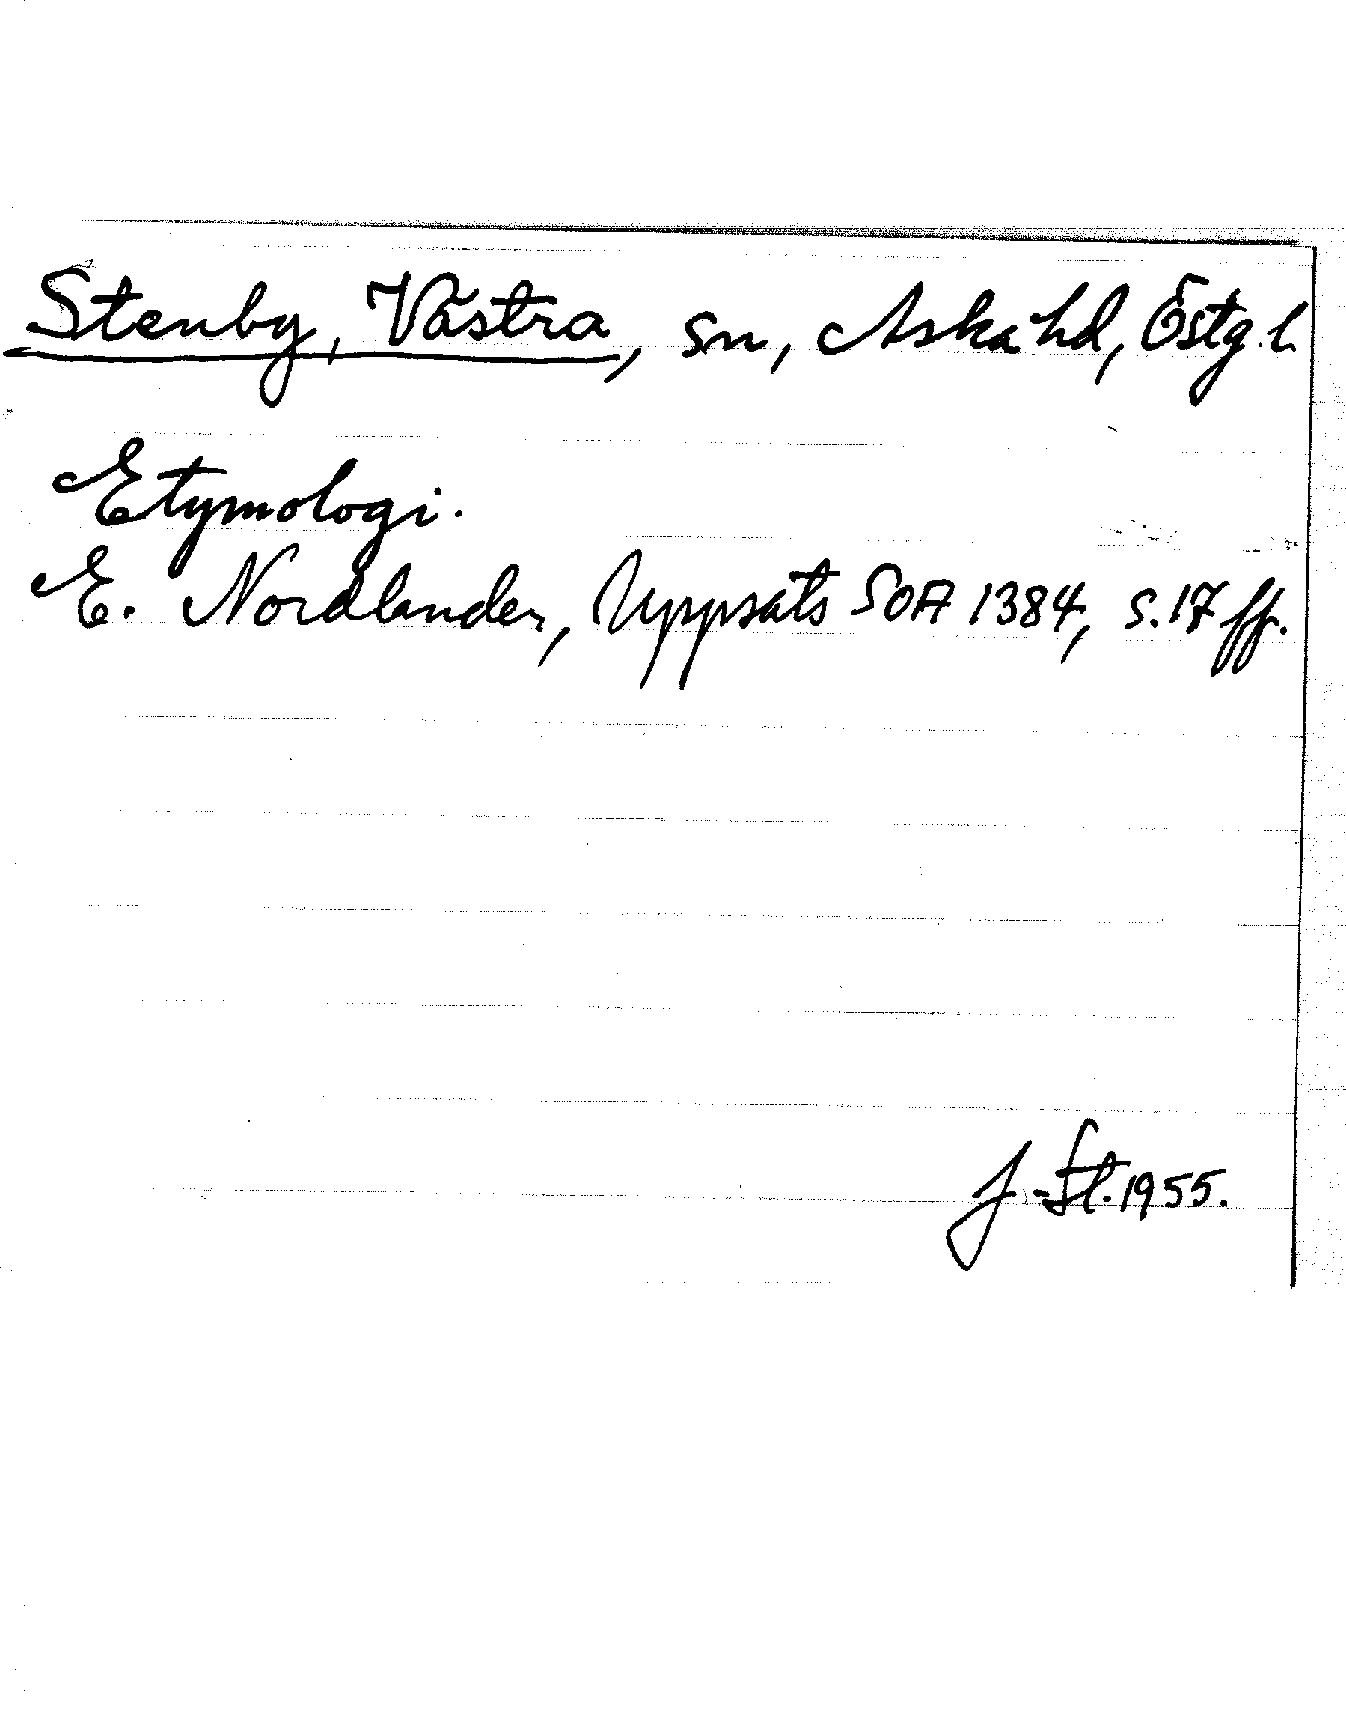 Stenby, Västra, sn, Aska hd, Östg. l.
Etymologi.
E. Nordlander, Uppsats SOA 1384, s. 17 ff.
J. St. 1955.